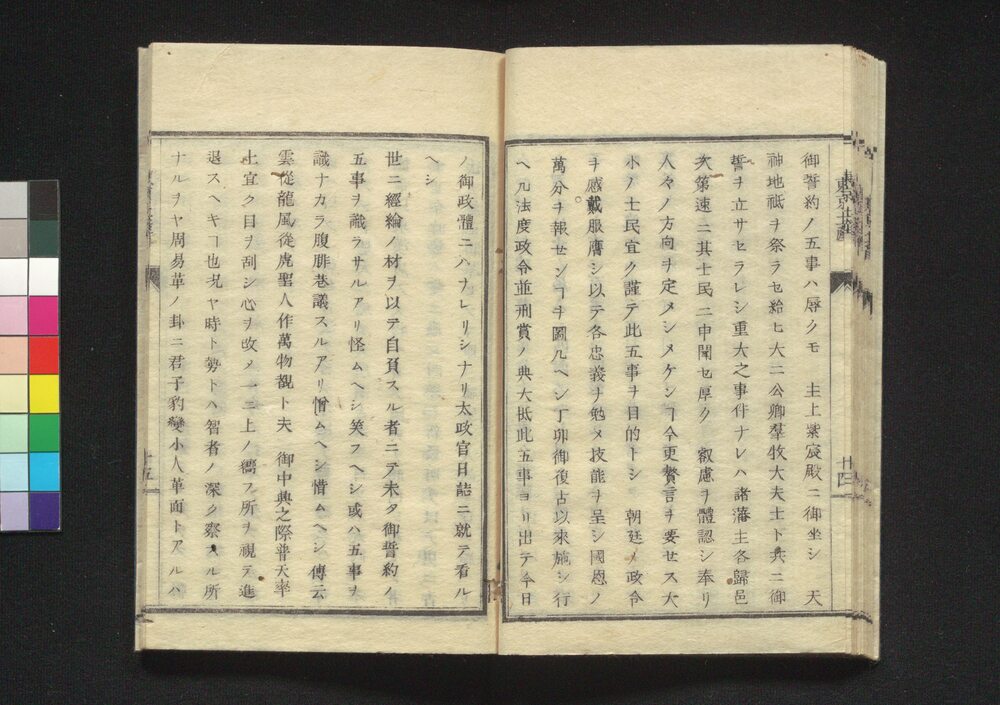 御誓約ノ五事ハ辱クモ　主上紫宸殿ニ御坐シ　天
神地祇ヲ祭ラセ給ヒ大ニ公卿羣牧大夫士ト共ニ御
誓ヲ立サセラレシ重大之事件ナレハ諸藩主各歸邑
次第速ニ其士民ニ申聞セ厚ク　叡慮ヲ體認シ奉リ
人々ノ方向ヲ定メシメケンヿ今更贅言ヲ要セス大
小ノ士民宜ク謹テ此五事ヲ目的トシ　朝廷ノ政令
ヲ感戴服膺シ以テ各忠義ヲ勉メ技能ヲ呈シ國恩ノ
萬分ヲ報センヿヲ圖凡ヘシ丁卯御復古以來施シ行
ヘ凡法度政令並刑賞ノ典大抵此五事ヨリ出テ今日
廿四
ノ御政體ニハナレリシナリ太政官日誌ニ就テ看ル
ヘシ
世ニ經綸ノ材ヲ以テ自負スル者ニテ未タ御誓約ノ
五事ヲ識ラサルアリ怪ムヘシ笑フヘシ或ハ五事ヲ
識ナカラ腹腓巷議スルアリ憎ムヘシ惜ムヘシ　傳云
雲從龍風從虎聖人作萬物覩ト夫　御中興之際普天率
土宜ク目ヲ刮シ心ヲ改メ一ニ上ノ嚮フ所ヲ視テ進
退スヘキヿ也况ヤ時ト勢トハ智者ノ深ク察スル所
ナルヲヤ周易革ノ卦ニ君子豹變小人革面トアルハ
十五